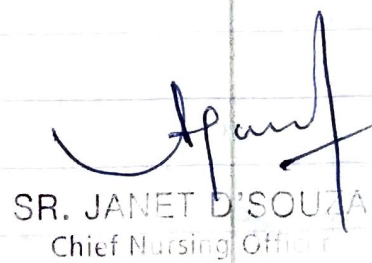 SR. JANET D'SOUZA
Chief Nursing Officer